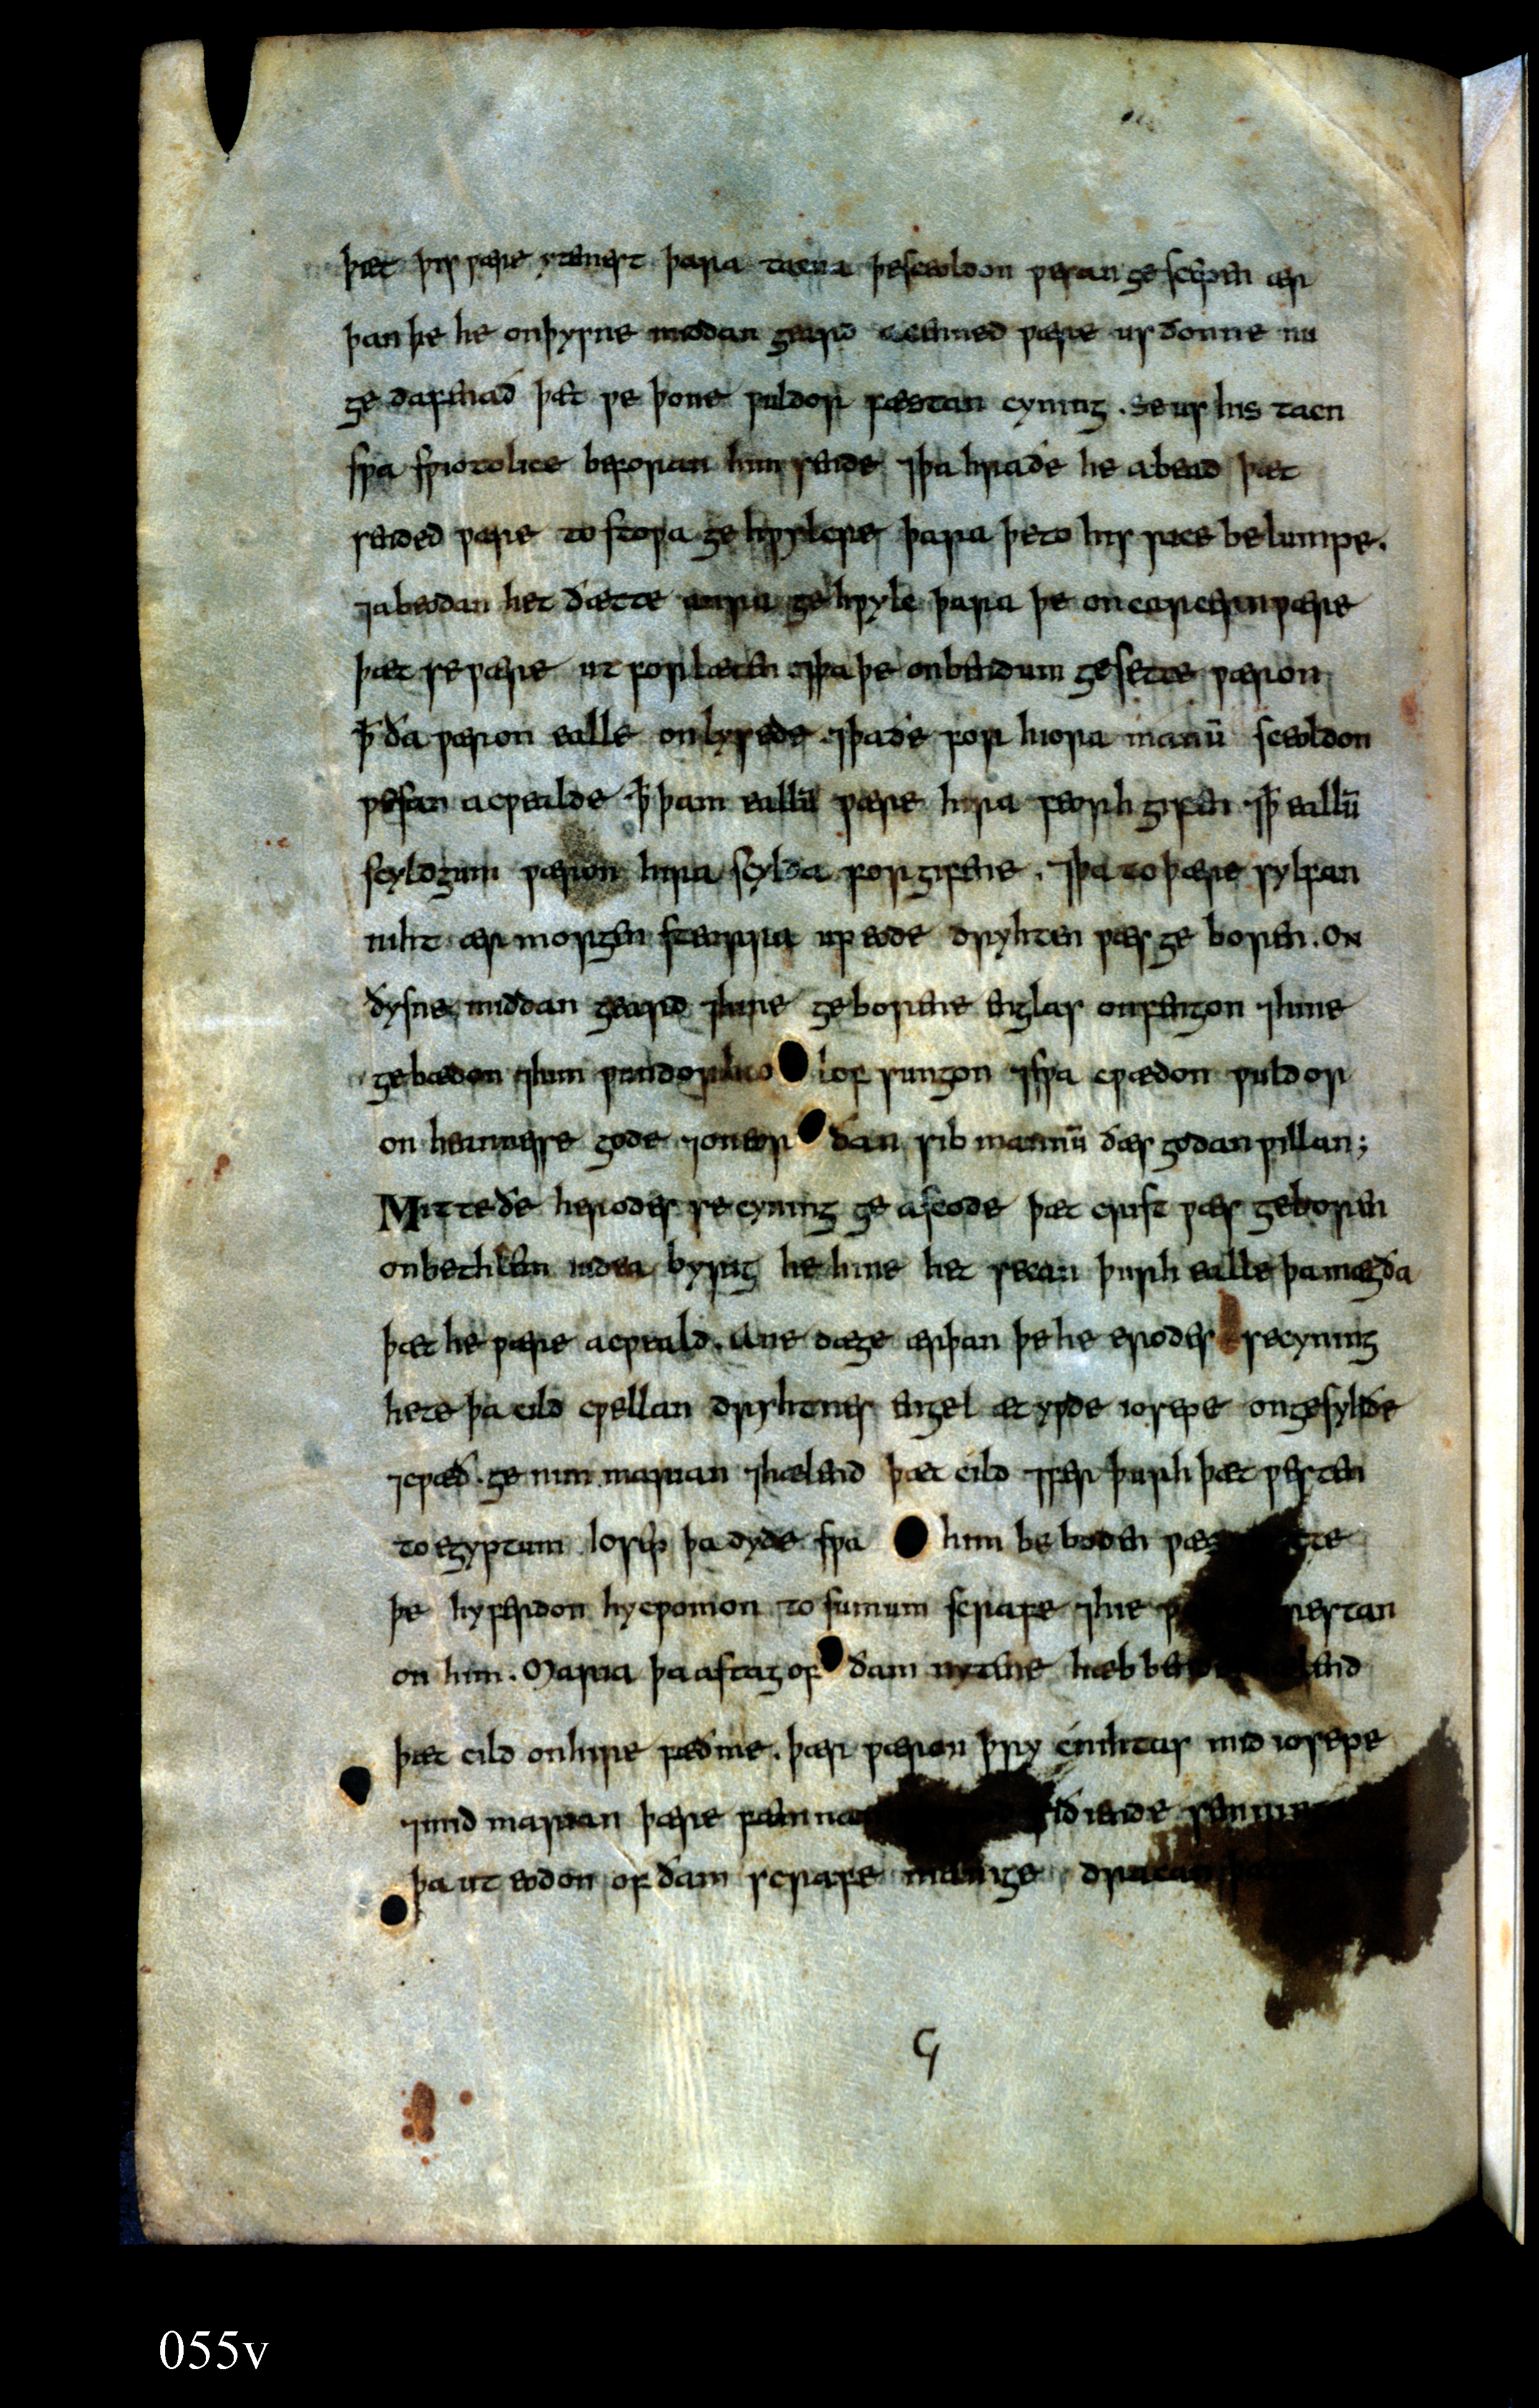 þæt þis ƿære ytemest þara tacna þe sceoldon ƿesan gesewen ær
þan þe he on þysne middan geard acenned ƿære us ðonne nu
ge dafenað þæt ƿe þone ƿuldor fæstan cyning . Se us his tacn
sƿa sƿiotolice beforan him sende ⁊ þa hraðe he abead þæt
sended ƿære to stoƿa ge hƿylcre þara þe to his rice belumpe .
⁊ abeodan het ðætte anra ge hƿylc þara þe on carcerum ƿære
þæt se ƿære ut forlæten ⁊ þa þe on bendum gesette ƿæron
ꝥ ða ƿæron ealle onlysede . ⁊ þa ðe for hiora manū sceoldon
ƿesan acƿealde ꝥ þam eallū ƿære hira feorh gifen ⁊ ꝥ eallū
scyldgum ƿæron hira scylda forgifene . ⁊ þa to þære sylfan
niht ær morgen steorra up eode dryhten ƿæs ge boren . ON
ðysne middan geard ⁊ hine geborene englas onfengon ⁊ hine
gebædon ⁊ him ƿundorlico lof sungon ⁊ sƿa cƿædon ƿuldor
on heannesse gode ⁊ on eor ðan sib mannū ðæs godan ƿillan ;
Mitte ðe herodes se cyning ge ascode þæt crist ƿæs geboren
on bethlem iudea byrig he hine het secan þurh ealle þa mægða
þæt he ƿære acƿeald . Ane dæge ær þan þe he erodes se cyning
hete þa cild cƿellan dryhtnes engel ætyƿde iosepe on gesyhðe
⁊ cƿæð . ge nim marian ⁊ hælend þæt cild ⁊ fer þurh þæt ƿesten
to egyptum Iosep þa dyde sƿa him be boden ƿæs
þe hy ferdon hy cƿomon to sumum scræfe ⁊ hie restan
on him . Maria þa astag of ðam nytene
þæt cild on hire fæðme . þær ƿæron þry cnihtas mid iosepe
⁊ mid marian þære fæmnan
þa ut eodon of ðam scræfe manige dracan
055v